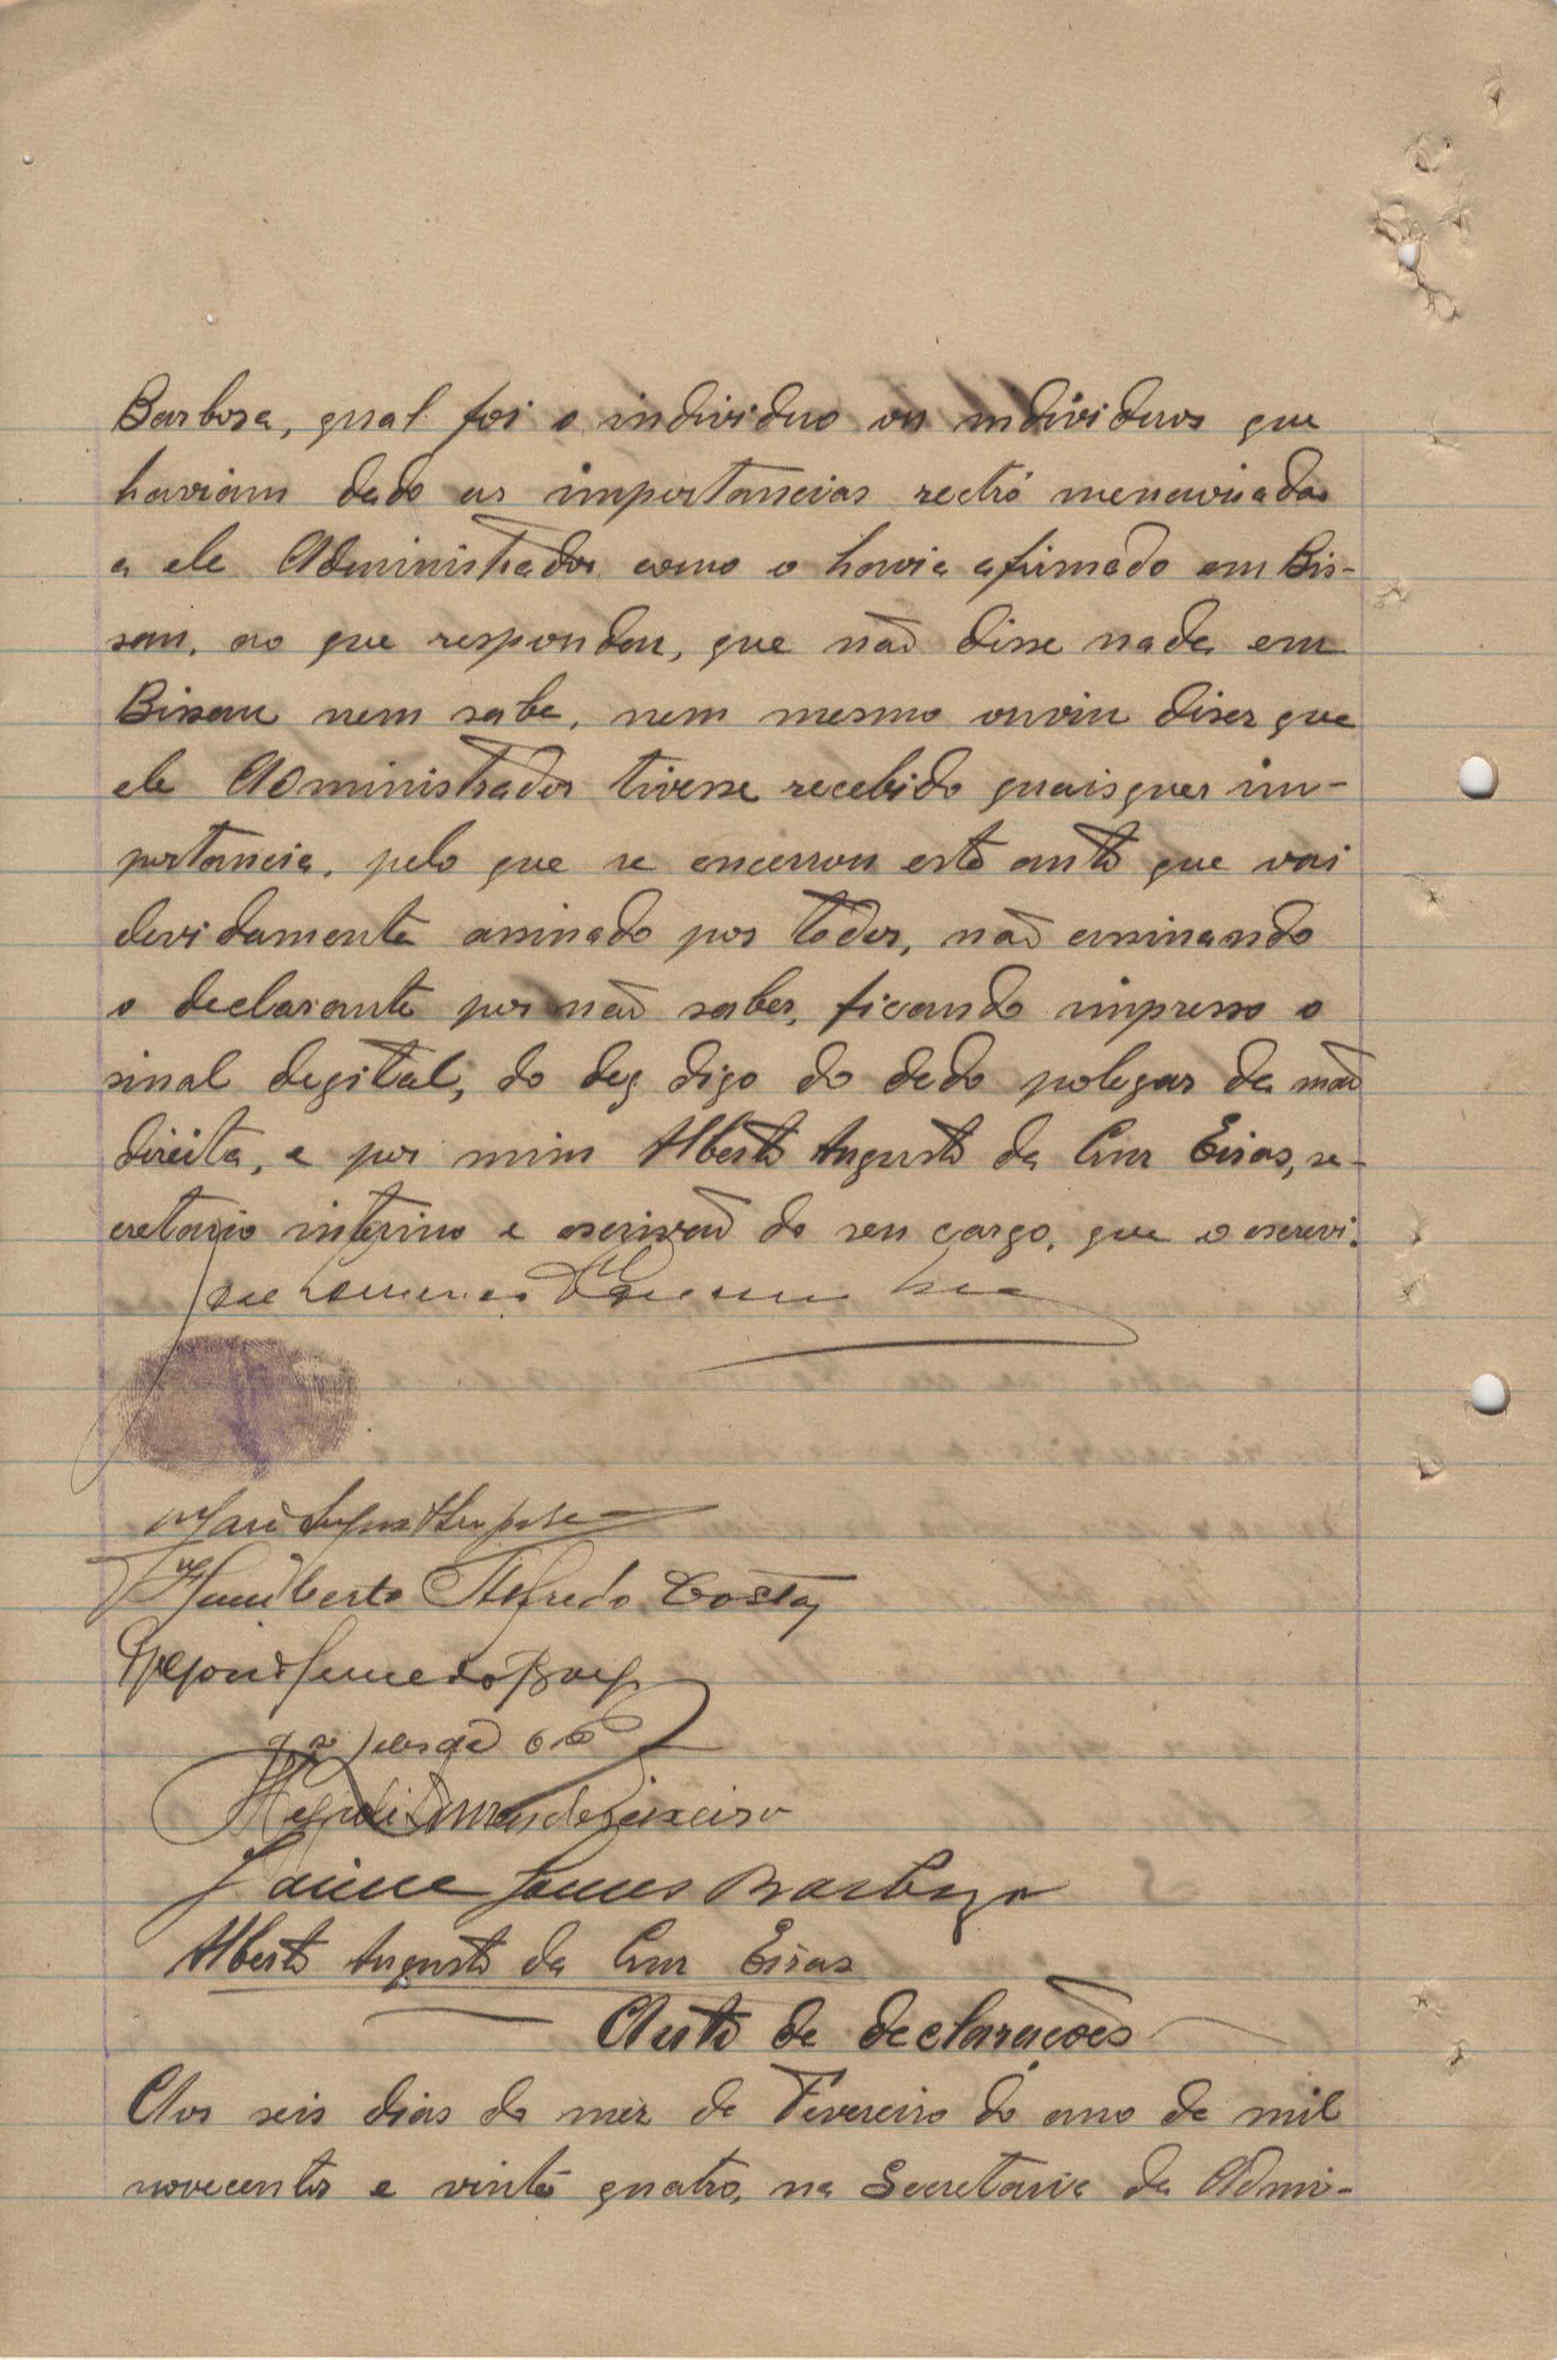 Barbosa, qual foi o individuo ou individuos que
haviam dado as importancias rectró mencionadas
a ele Administrador como o havia afirmado em Bis-
sau, ao que respondeu, que não disse nada em
Bissau nem sabe, nem mesmo ouviu diser que
ele Administrador tivesse recebido quaisquer im-
portancia, pelo que se encerrou este auto que vai
devidamente assinado por todos, não assinando
o declarante por não saber, ficando impresso o
sinal degital, do deg digo do dedo polegar da mão
direita, e por mim Alberto Augusto da Cruz Eiras, se-
cretario interino e escrivão do seu cargo, que o escrevi.
Humberto Alfredo Costa
Jaime Gomes Barboza
Alberto Augusto da Cruz Eiras
Auto de declarações
Aos seis dias do mez de Fevereiro do ano de mil
novecentos e vinte quatro, na Secretaria da Admi-